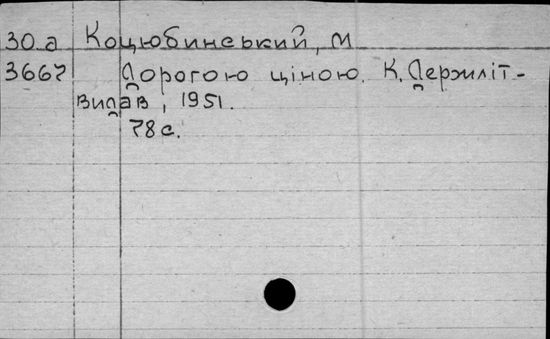 30 а Коцюбинський, М
3667 Дорогою ціною. К. Держліт-
видав, 1951.
78 с.